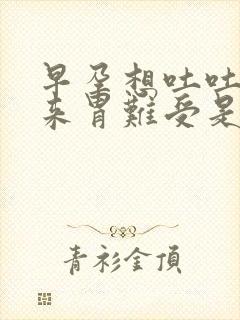 早孕想吐吐
来胃難受是
青衫金頂